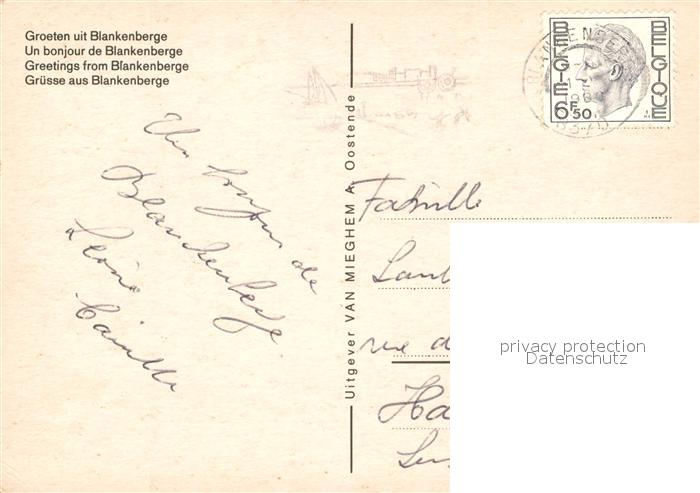 Groeten uit Blankenberge
Un bonjour de Blankenberge
Greetings from Blankenberge
Grüsse aus Blankenberge
Un bonjour de
Blankenberge
Camille
Uitgever VAN MIEGHEM A. Oostende
BELGIE BELGIQUE
6F50
Famille
rue
privacy protection
Datenschutz